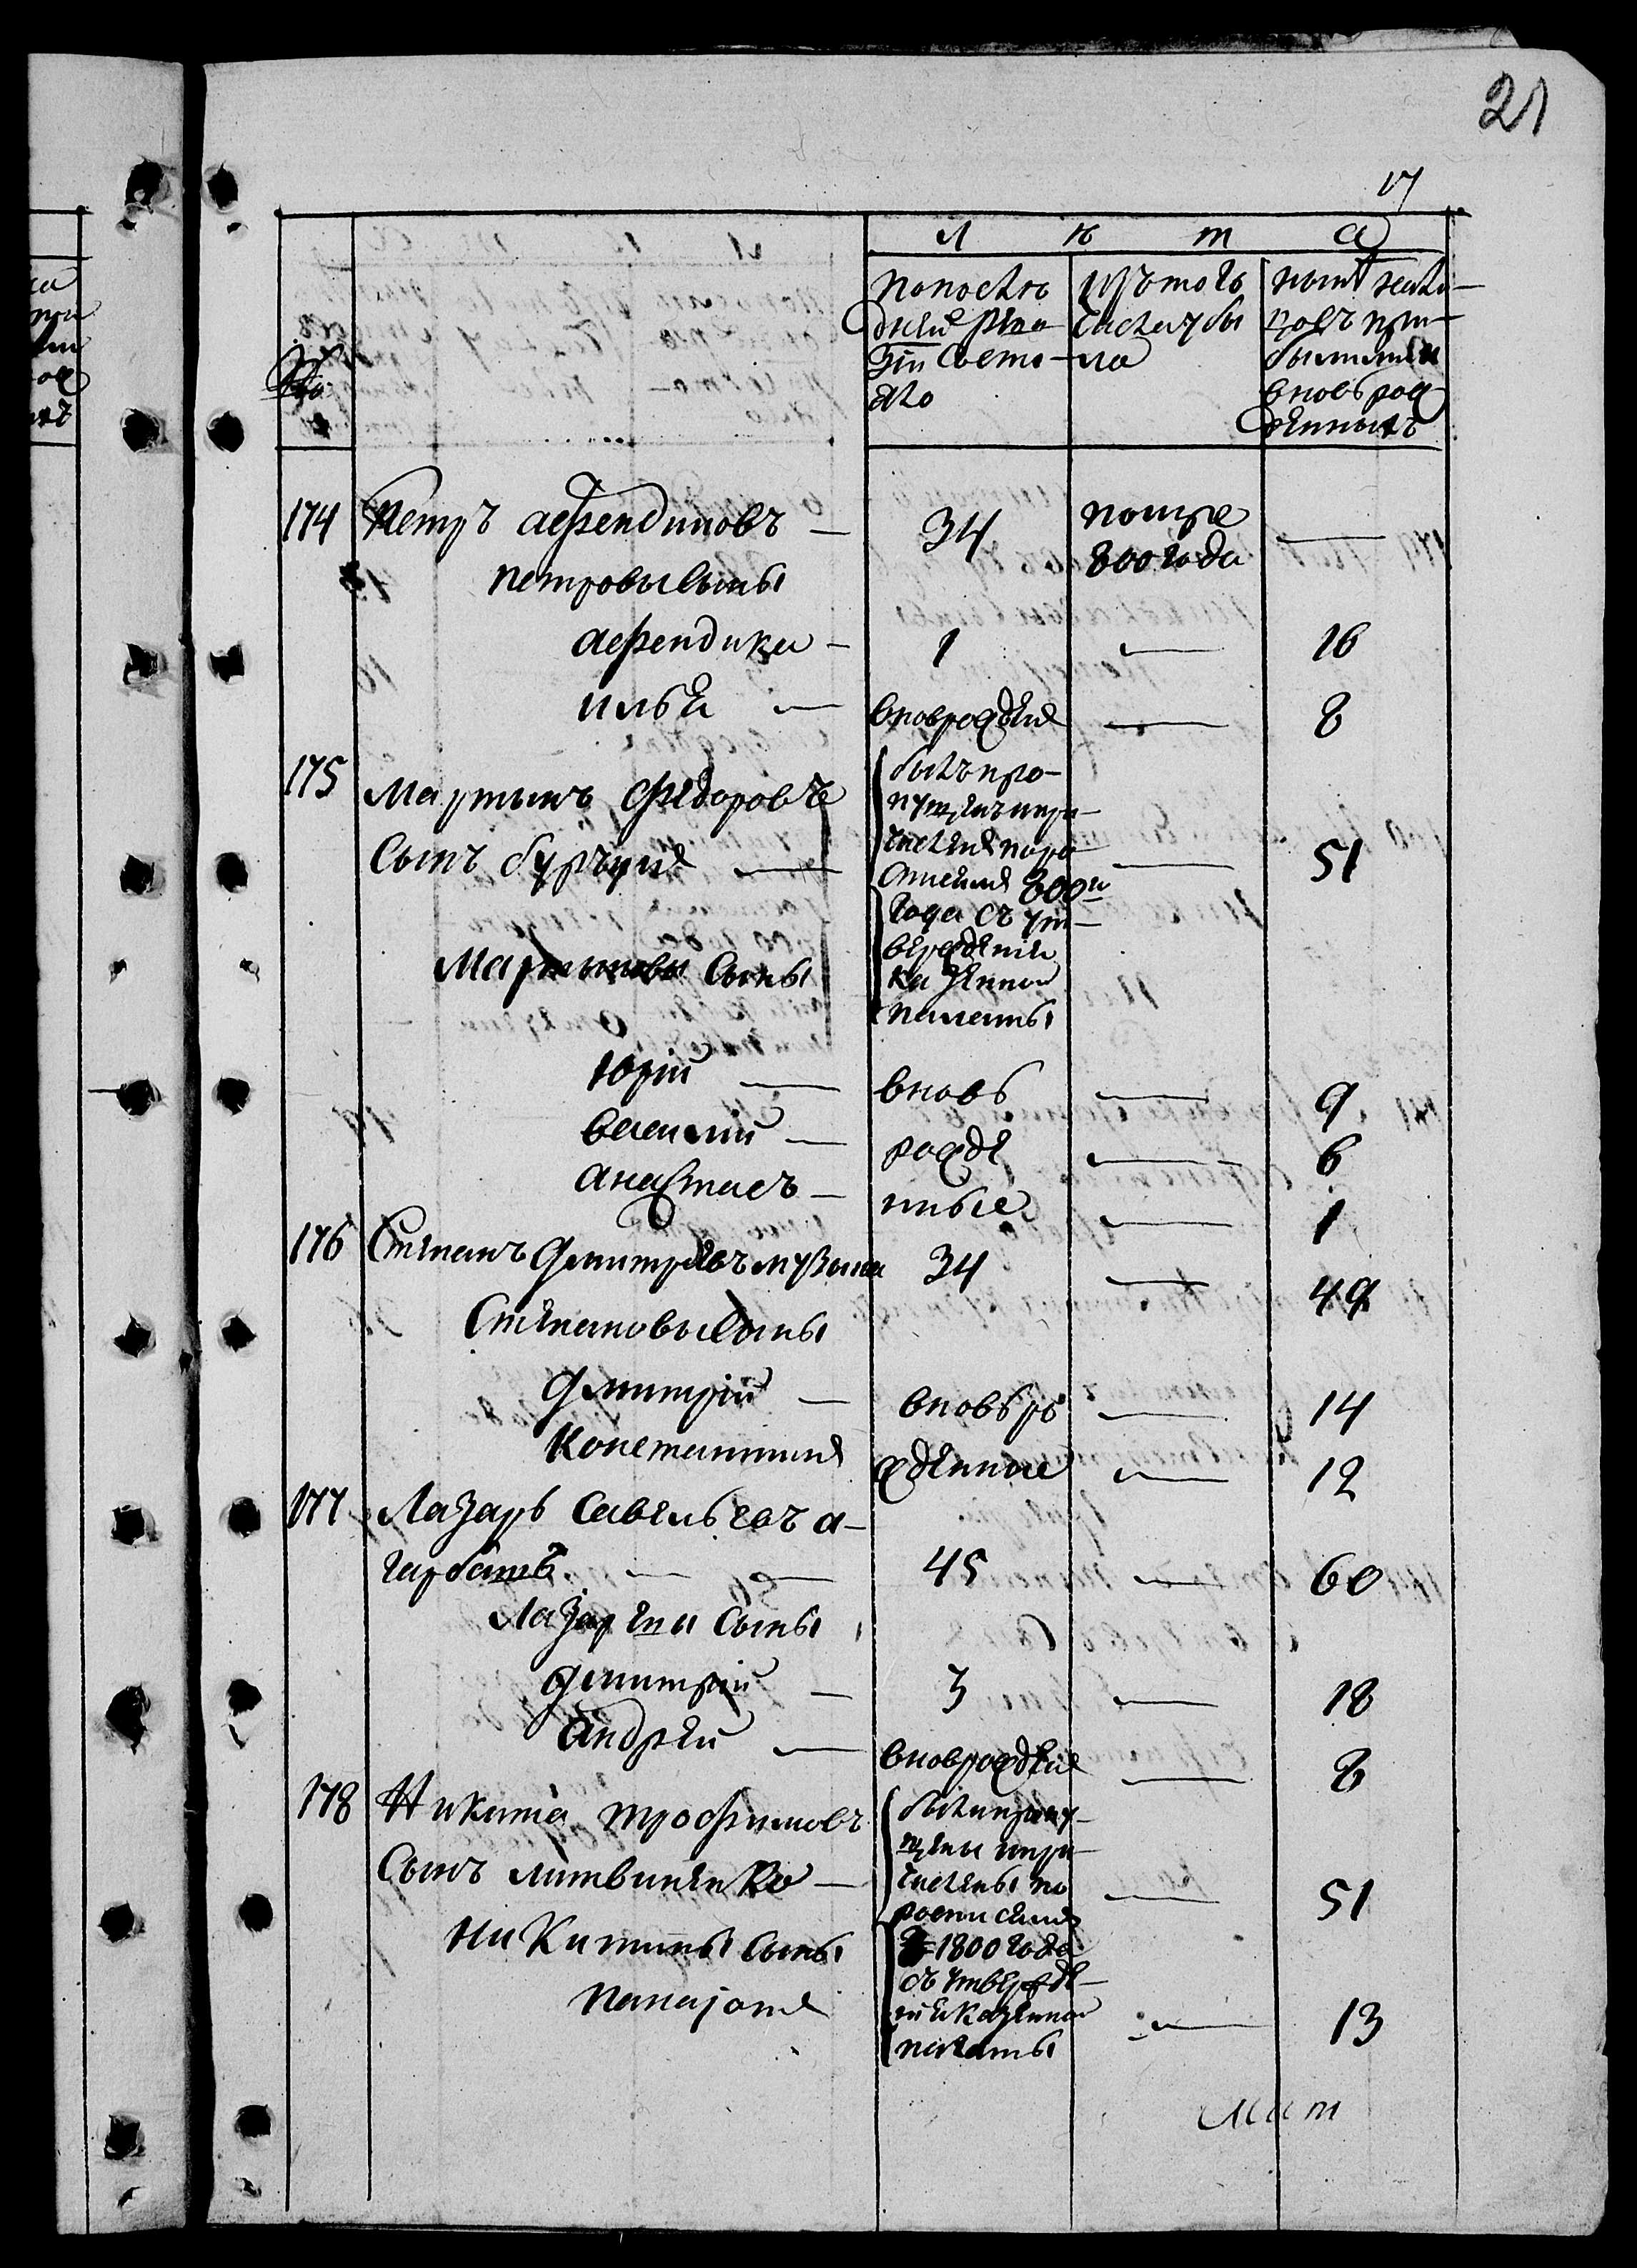 21
17
Л ѣ т а
№
попослѣ
дней реви
зіи состо
яло
изътого
числаубы
ло
нынѣ налѣ
цовъ при
былыми и
вновь рож
денныхъ
174 Петръ афендиковъ — 34 помре 800 года —
петровысыны
афендика — 1 — 16
илья — вноврожден — 8
175 Мартынъ федоровъ
сынъ бурзуне — — 51
былъ про
пущенъ и при
численъ по ро
списанію 800го
года съ ут
вержденія
казенной
палаты
Мартыновы сыны
юрій — вновь — 9
василий — рожде — 6
анастасъ — нные — 1
176 Степанъ дмитревъ музына 34 — 49
Степановысыны
дмитрій — вновь ро — 14
константинъ жденные — 12
177 Лазарь савельевъ а
гарбашъ. — — 45 — 60
Лазаревы сыны
дмитрій — 3 — 18
андрей — вноврожден — 8
178 Никита трофимовъ
сынъ литвиненко — — 51
были пропу
щены и при
числены по
росписанію
1800 года
съ утвержде
нія казенной
палаты
никитины сыны
панаіоти — 13